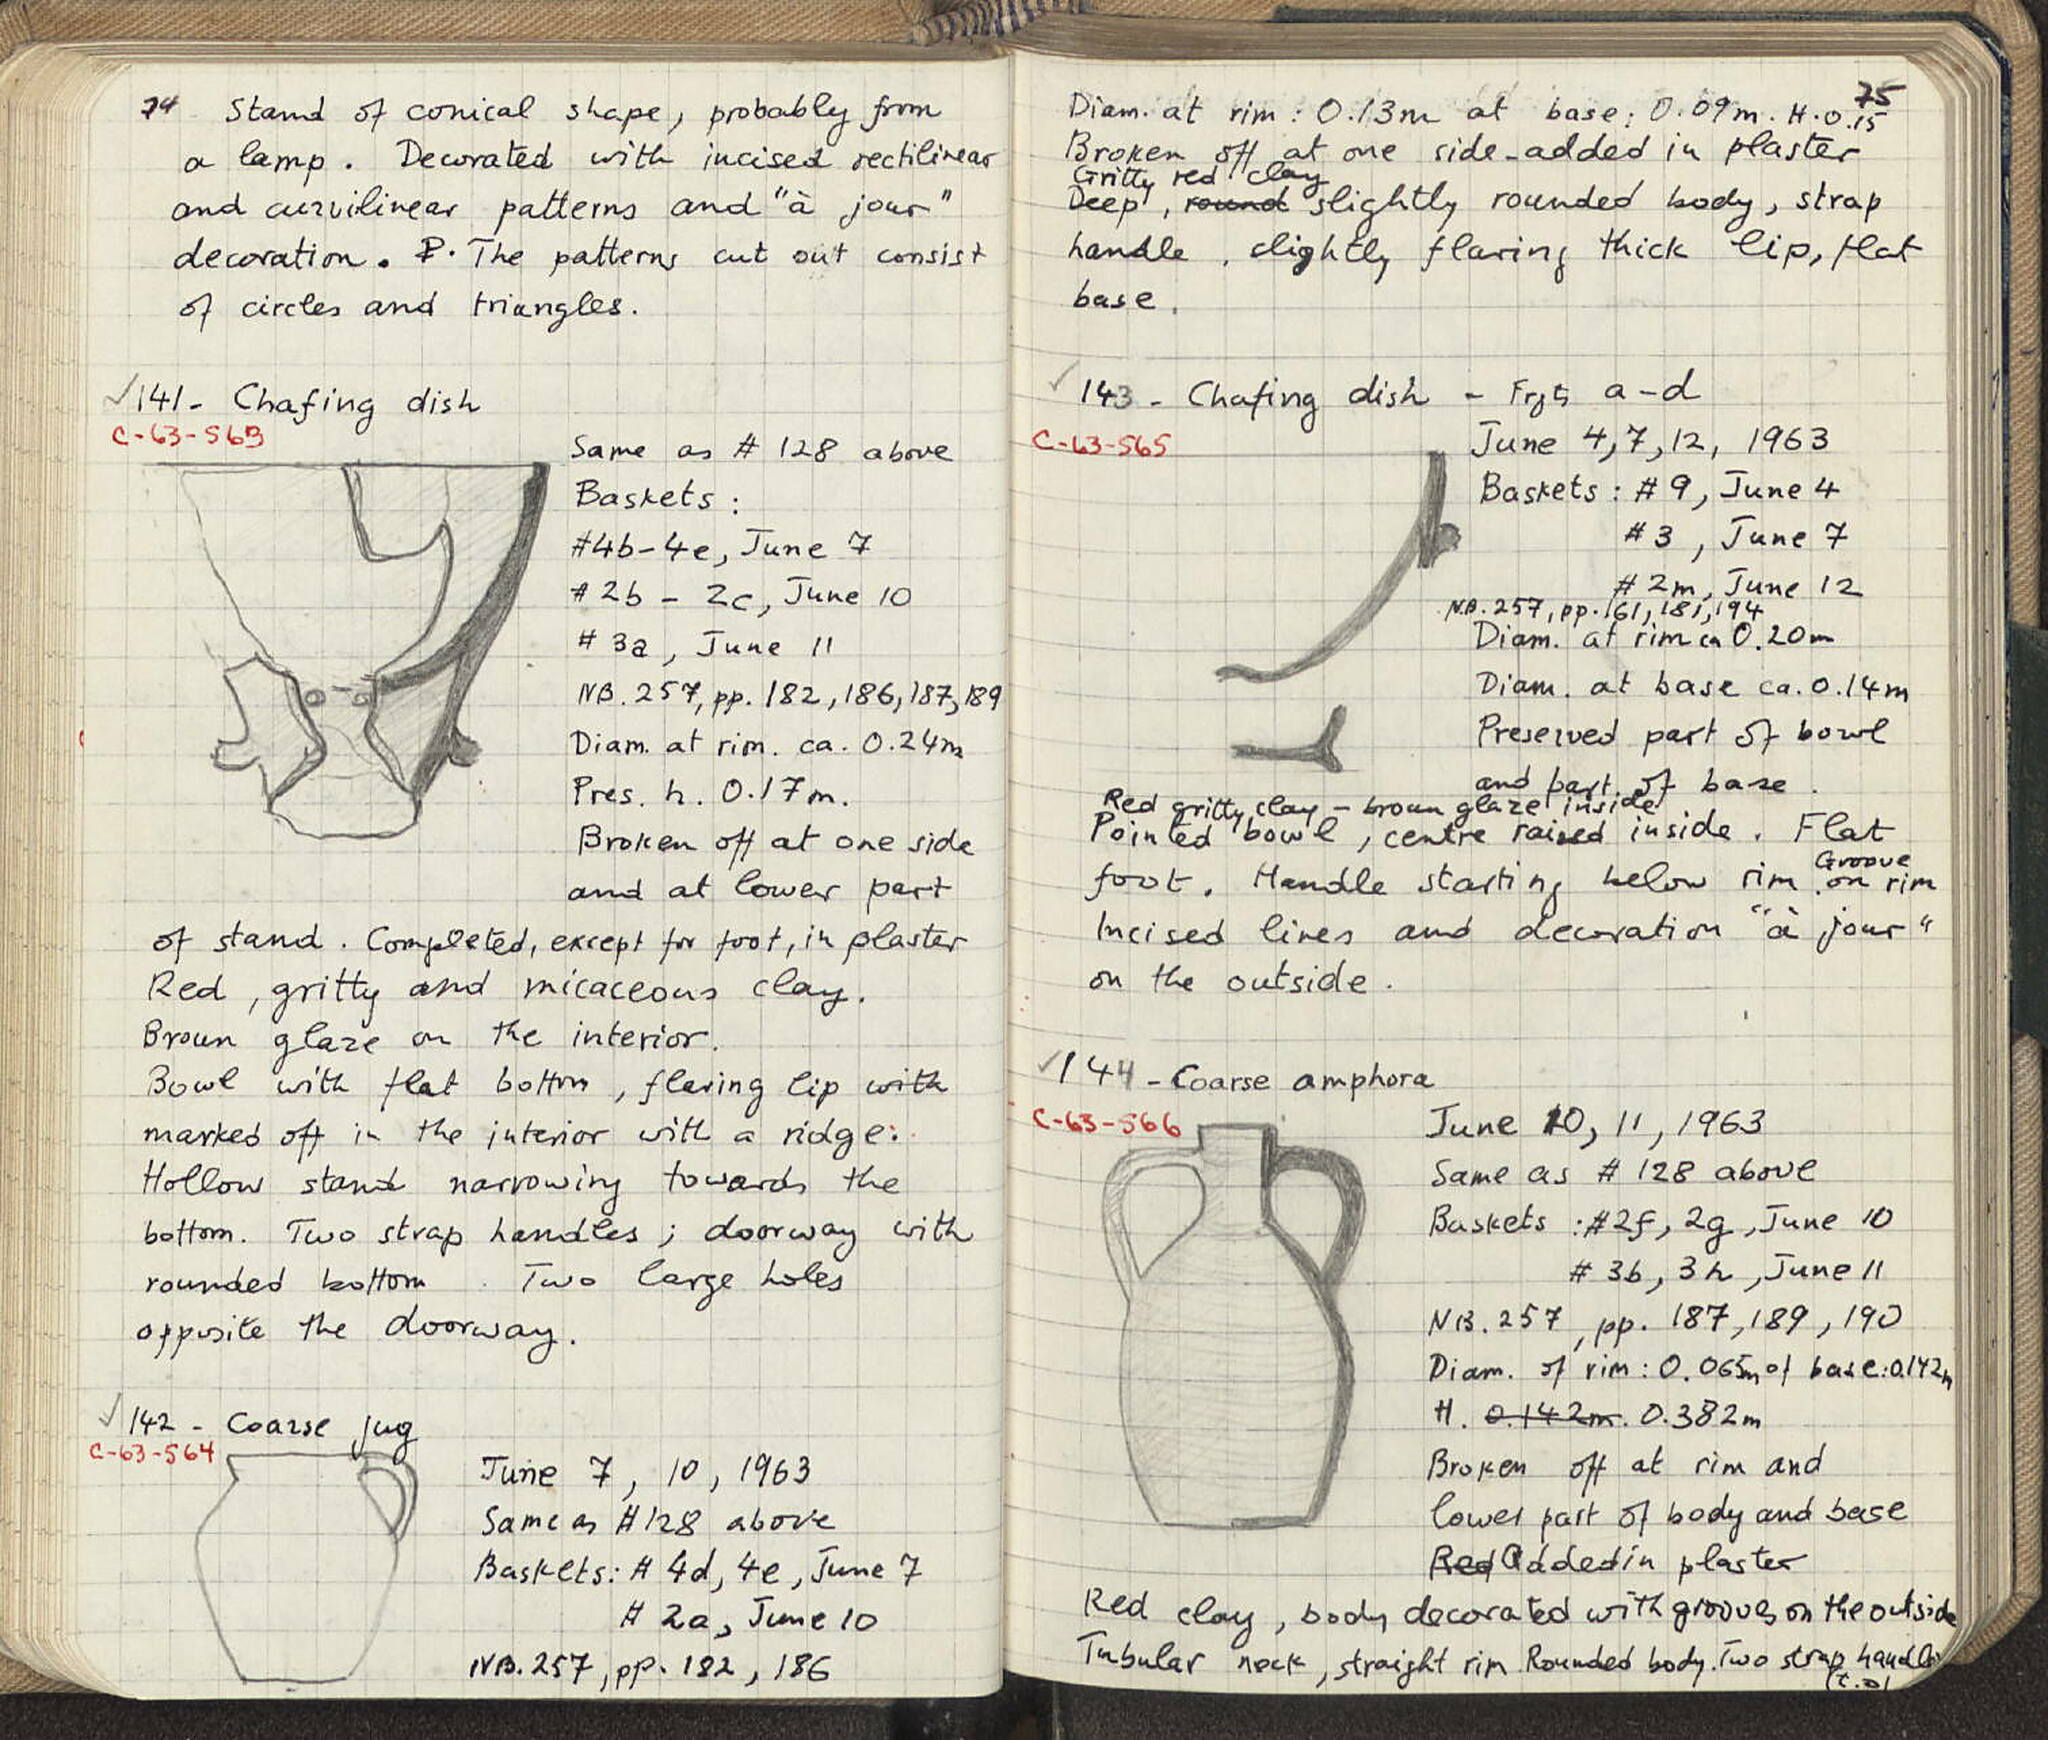 74 Stand of conical shape, probably from
a lamp. Decorated with incised rectilinear
and curvilinear patterns and "à jour"
decoration. P. The patterns cut out consist
of circles and triangles.
141- Chafing dish
C-63-563
Same as # 128 above
Baskets:
#4b-4e, June 7
# 2b - 2c, June 10
# 3a, June 11
NB. 257, pp. 182, 186, 187, 189
Diam. at rim. ca. 0.24m
Pres. h. 0.17m.
Broken off at one side
and at lower part
of stand. Completed, except for foot, in plaster
Red, gritty and micaceous clay.
Broun glaze on the interior.
Bowl with flat bottom, flaring lip with
marked off in the interior with a ridge.
Hollow stand narrowing towards the
bottom. Two strap handles; doorway with
rounded bottom. Two large holes
opposite the doorway.
142 - Coarse jug
C-63-564
June 7, 10, 1963
Same as #128 above
Baskets: # 4d, 4e, June 7
# 2a, June 10
NB. 257, pp. 182, 186
75
Diam. at rim: 0.13m at base: 0.09m. H. 0.15
Broken off at one side-added in plaster
Gritty red clay
Deep, round slightly rounded body, strap
handle, slightly flaring thick lip, flat
base.
143 - Chafing dish - Frgts a-d
C-63-565
June 4, 7, 12, 1963
Baskets: # 9, June 4
# 3, June 7
# 2m, June 12
NB. 257, pp. 161, 181, 194
Diam. at rim ca 0.20m
Diam. at base ca. 0.14m
Preserved part of bowl
and part of base.
Red gritty clay - broun glaze inside
Pointed bowl, centre raised inside. Flat
foot. Handle starting below rim. Groove on rim
Incised lines and decoration "à jour"
on the outside.
144 - Coarse amphora
C-63-566
June 10, 11, 1963
Same as # 128 above
Baskets: #2f, 2g, June 10
# 3b, 3h, June 11
NB. 257, pp. 187, 189, 190
Diam. of rim: 0.065m of base: 0.142m
H. 0.142m. 0.382m
Broken off at rim and
lower part of body and base
Red Added in plaster
Red clay, body decorated with grooves on the outside
Tubular neck, straight rim. Rounded body. Two strap handles
(t.o)